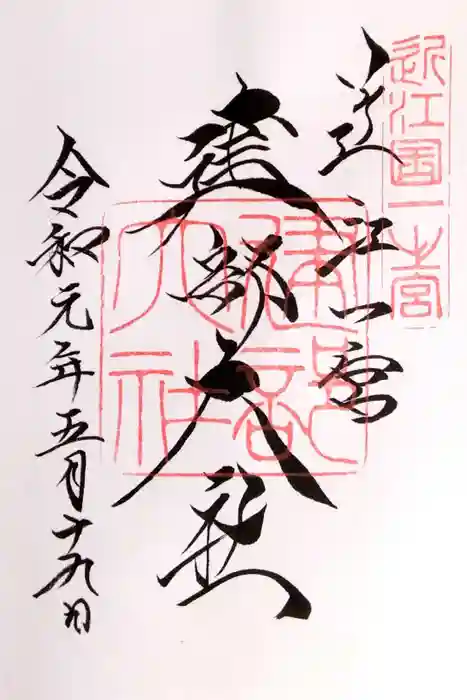 近江國一之宮
近江一宮
建部大社
建部大社
令和元年五月十九日